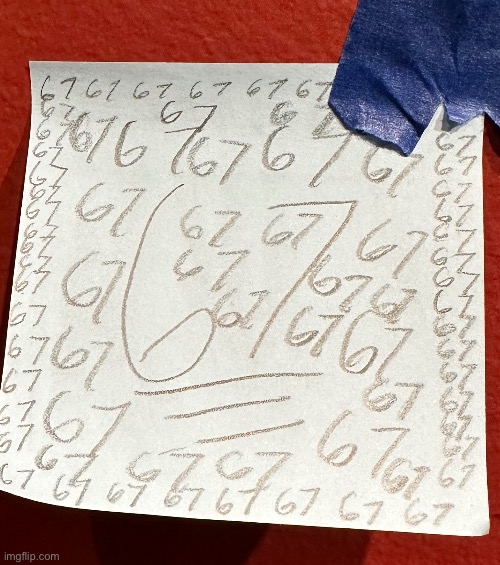 67 67 67 67 67 67
67 67 67
67 67 67 67 67 67 67
67 67
67 67
67 67
67 67 67 67 67
67 67 67 67
67 67
67 67 67 67 67
67 67 67 67
67 67 67 67
67 67 67
67 67 67
67 67 67
67 67 67
67 67 67 67 67 67
67 67 67 67 67 67 67 67
imgflip.com